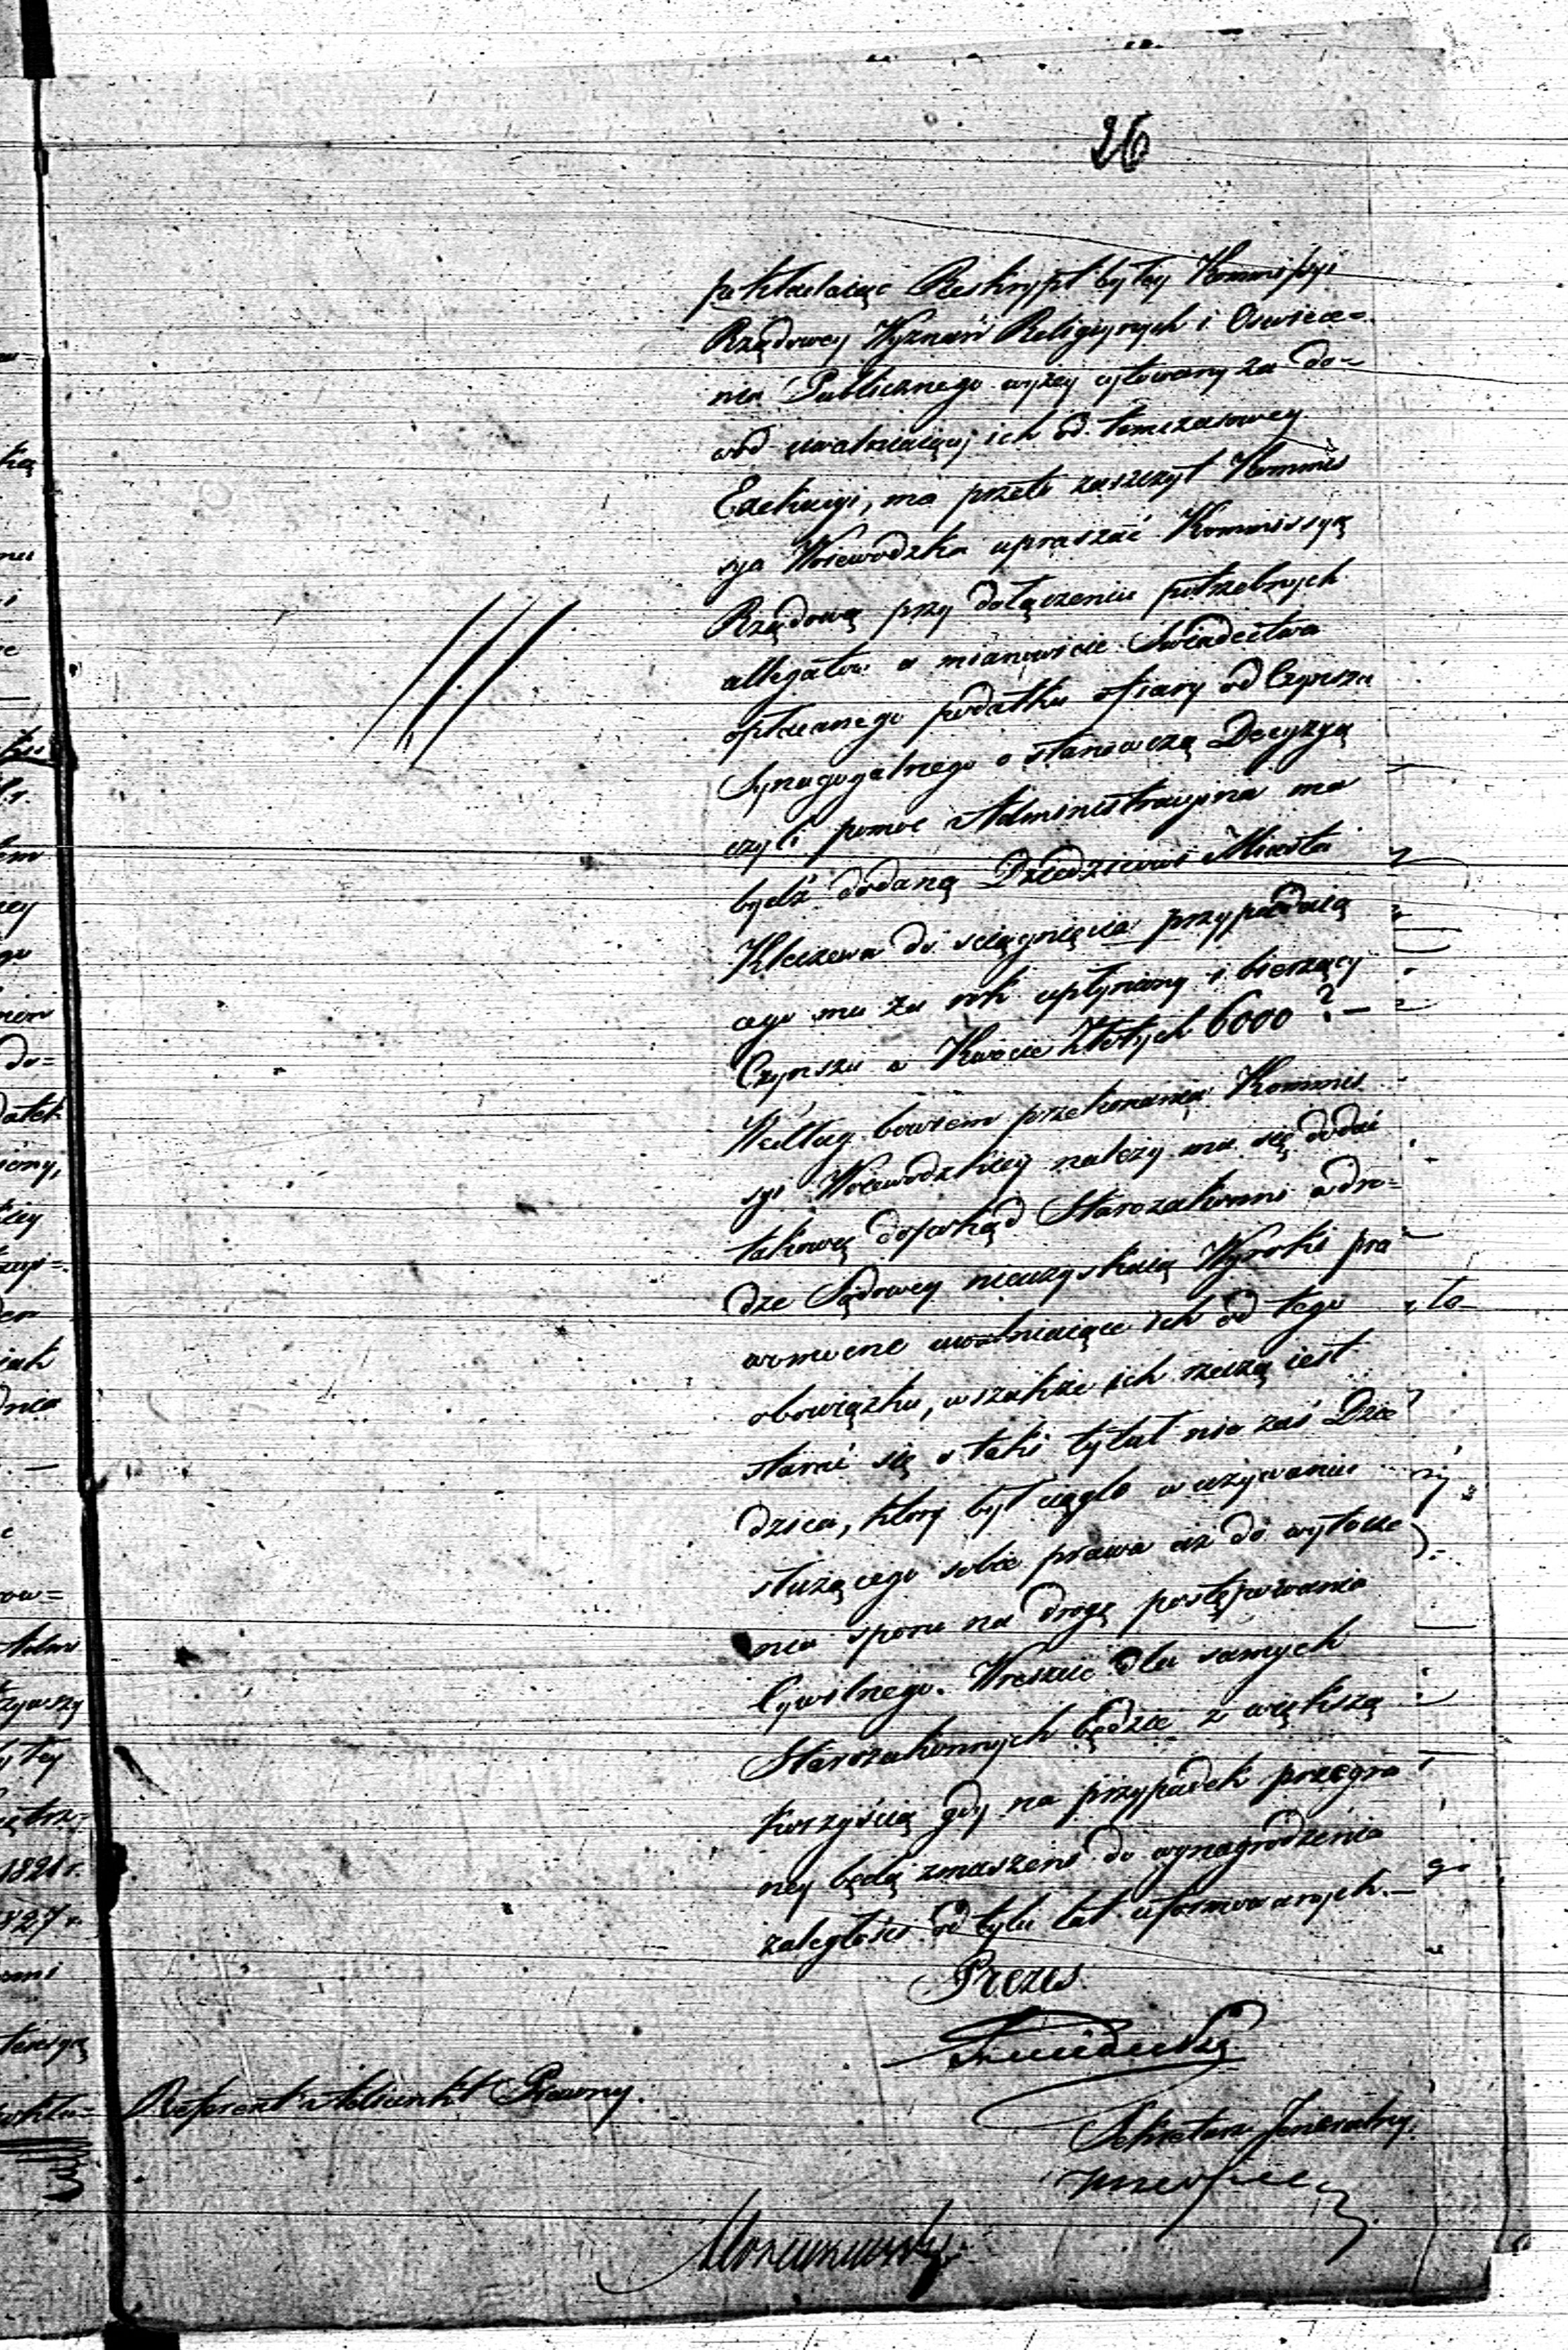 26
pokładaiąc Reskrypt byłey Kommissyi
Rządowey Wyznań Religiynych i Oswiece=
nia Publicznego wyżey cytowany za do=
wód uwalniaiący ich od tomczasowey
Exekucyi, ma przeto zaszczyt Kommis
sya Woiewodzka upraszać Kommissyą
Rządową przy dołączeniu potrzebnych
allegatów a mianowicie Swiadectwa
opłacanego podatku ofiary od Czynszu
Synagogalnego o stanowczą Decyzyą
czyli pomoc Administracyina ma
bydź dodaną Dziedzicowi Miasta
Kleczewa do sciągnięcia przypadaią
cego mu za rok upłyniony i bieżący
Czynszu w Kwocie Złotych 6000 ? –
Według bowiem przekonania Kommis
syi Woiewodzkiey należy mu się dodać
takową dopokąd Starozakonni w dro=
dze Sądowey nieuzyskaią Wyroki pra
womocne uwalniaiące ich od tego
obowiązku, wszakże ich rzeczą iest
starać się o taki tytuł nie zaś Dzie
dzica, ktory był ciągle w używaniu
służącego sobie prawa aż do wytocze
nia sporu na drogę postępowania
Cywilnego. Wreszcie dla samych
Starozakonnych będzie z większą
korzyścią gdy na przypadek przegra
ney będą zmuszeni do wynagrodzenia
zaległości od tylu lat uformowanych. –
Prezes
Referent Adiunkt Prawny.
Sekretarz Jeneralny.